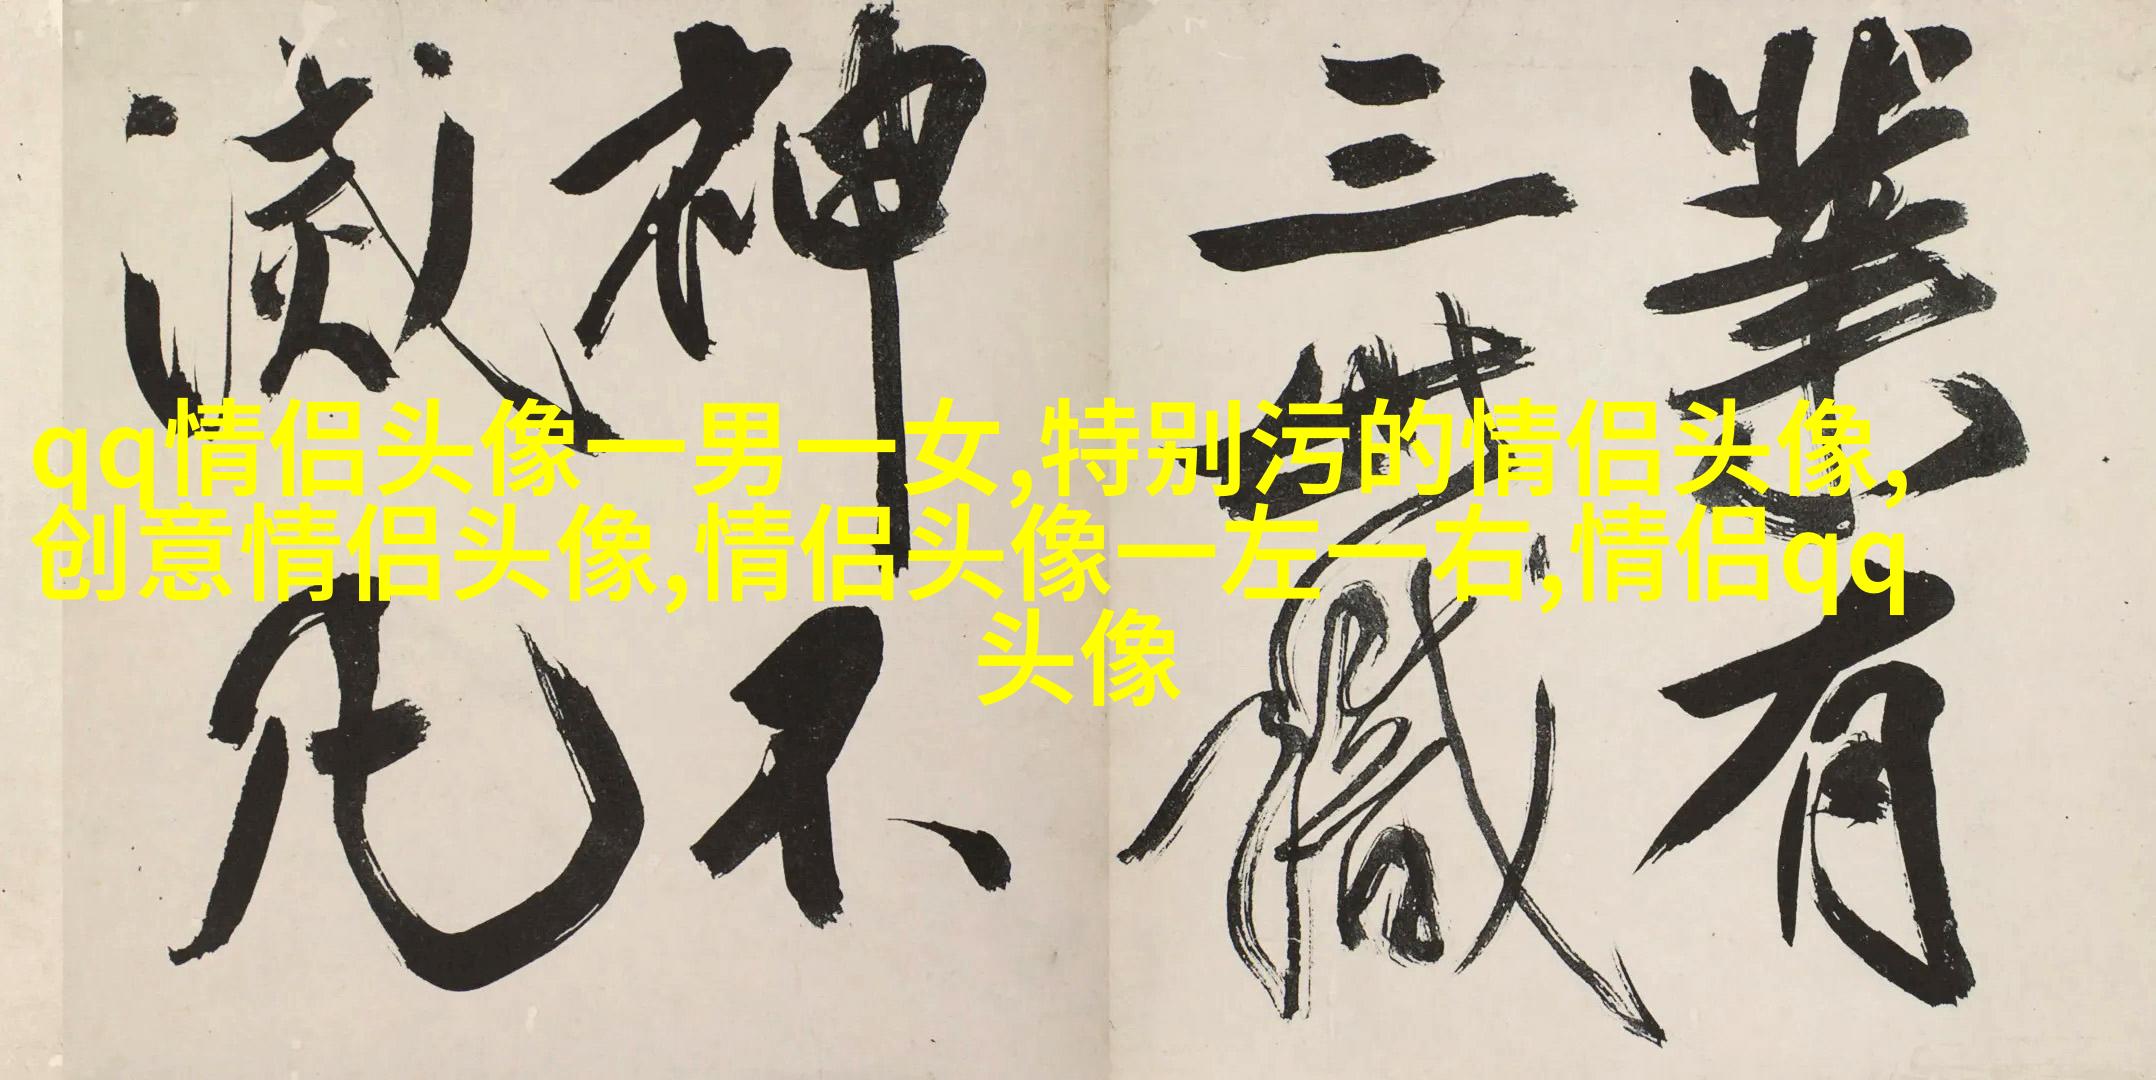 業有
三世識
神不
滅凡
qq情侣头像一男一女,特别污的情侣头像,
创意情侣头像,情侣头像一左一右,情侣qq
头像